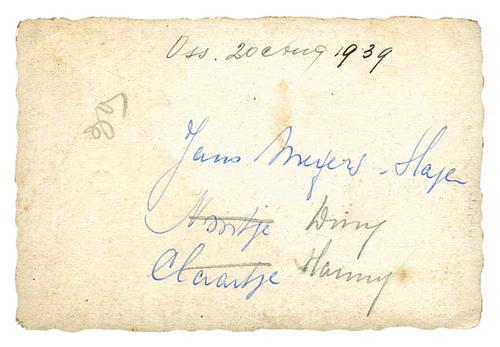 Oss. 20 Aug 1939
Jans Meyers - Hagen
Noortje Diny
Claartje Hanny